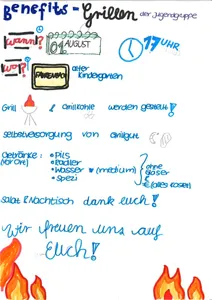 Benefits-Grillen der Jugendgruppe
wann? 01 AUGUST 17 UHR
wo? alter Kindergarten
Grill & Grillkohle werden gestellt!
selbstversorgung von Grillgut
Getränke: • Pils
(vor Ort) • Radler
• Wasser (medium)
• Spezi
ohne Gläser
(alles kostet)
Salat & Nachtisch dank euch!
Wir freuen uns auf
Euch!